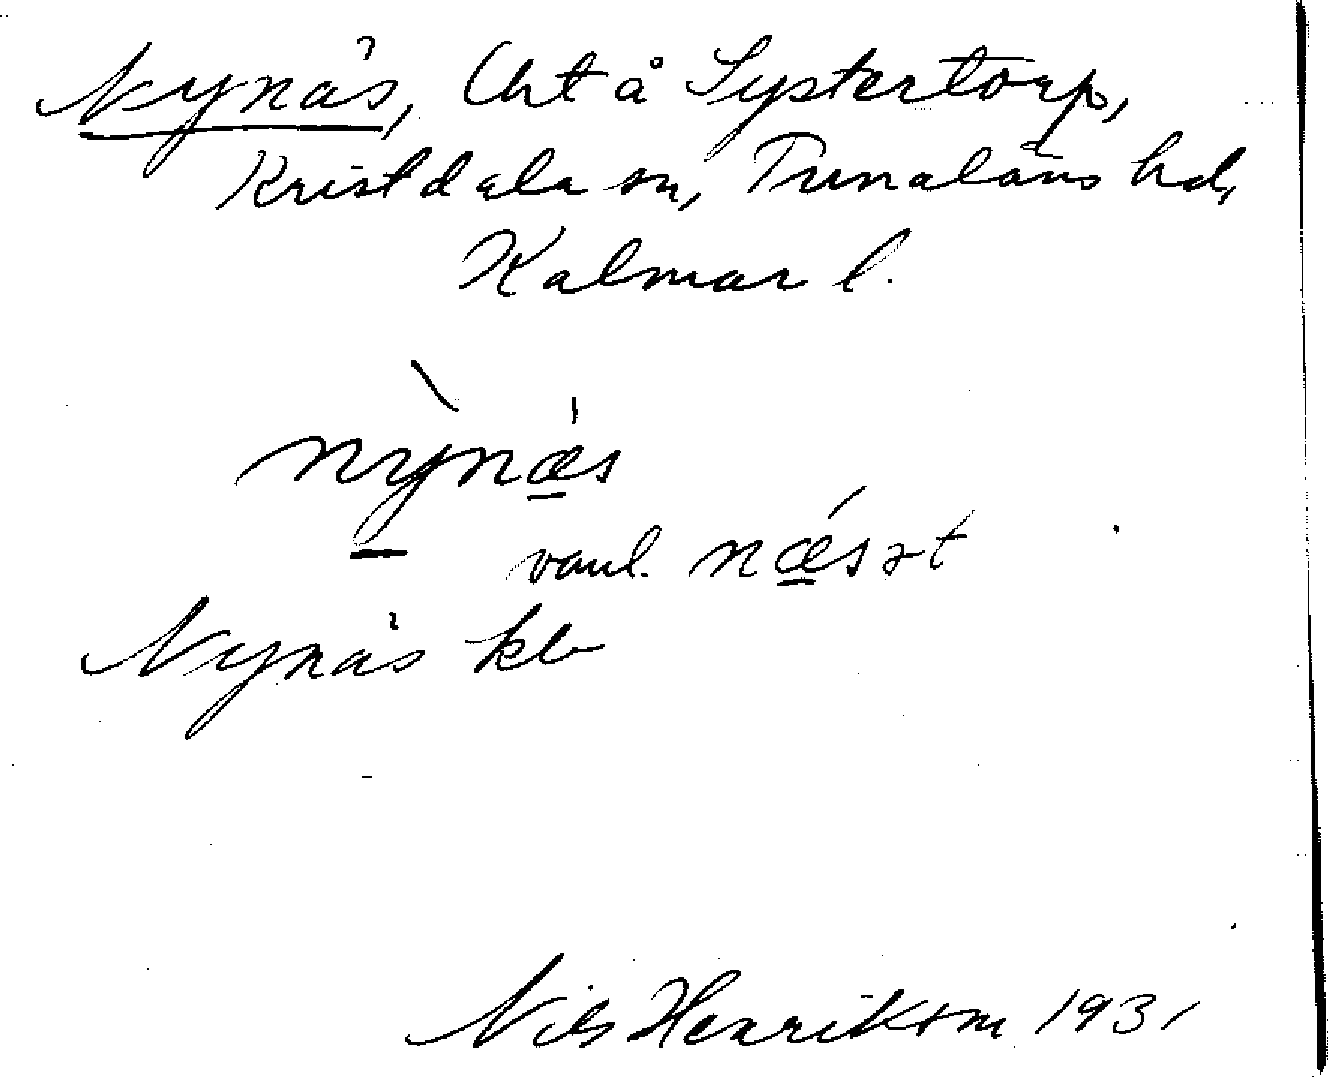 Nynäs, Cht å Systertorp,
Kristdala sn, Tunaläns hd,
Kalmar l.
nỳnæ̀s
vanl. nǽsət
Nynäs kb
Nils Henriksson 1931